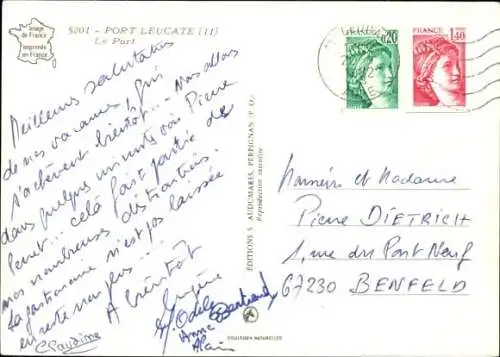 Image
de France
Imprimée
en France
5201 - PORT LEUCATE (11)
Le Port
Meilleures salutations
de nos vacances, qui
s'achèvent bientôt... Nous allons
dans quelques minutes voir Pierre
... cela fait partie de
nos nombreuses distractions.
La gastronomie n'est pas laissée
en reste non plus...
A bientôt
Eugène
Odile
Bertrand
Anne
Alain
Claudine
EDITIONS S. AUDUMARES, PERPIGNAN (P.-O.)
Reproduction interdite
0,20
FRANCE
1,40
Monsieur et Madame
Pierre DIETRICH
1, rue du Pont Neuf
67230 BENFELD